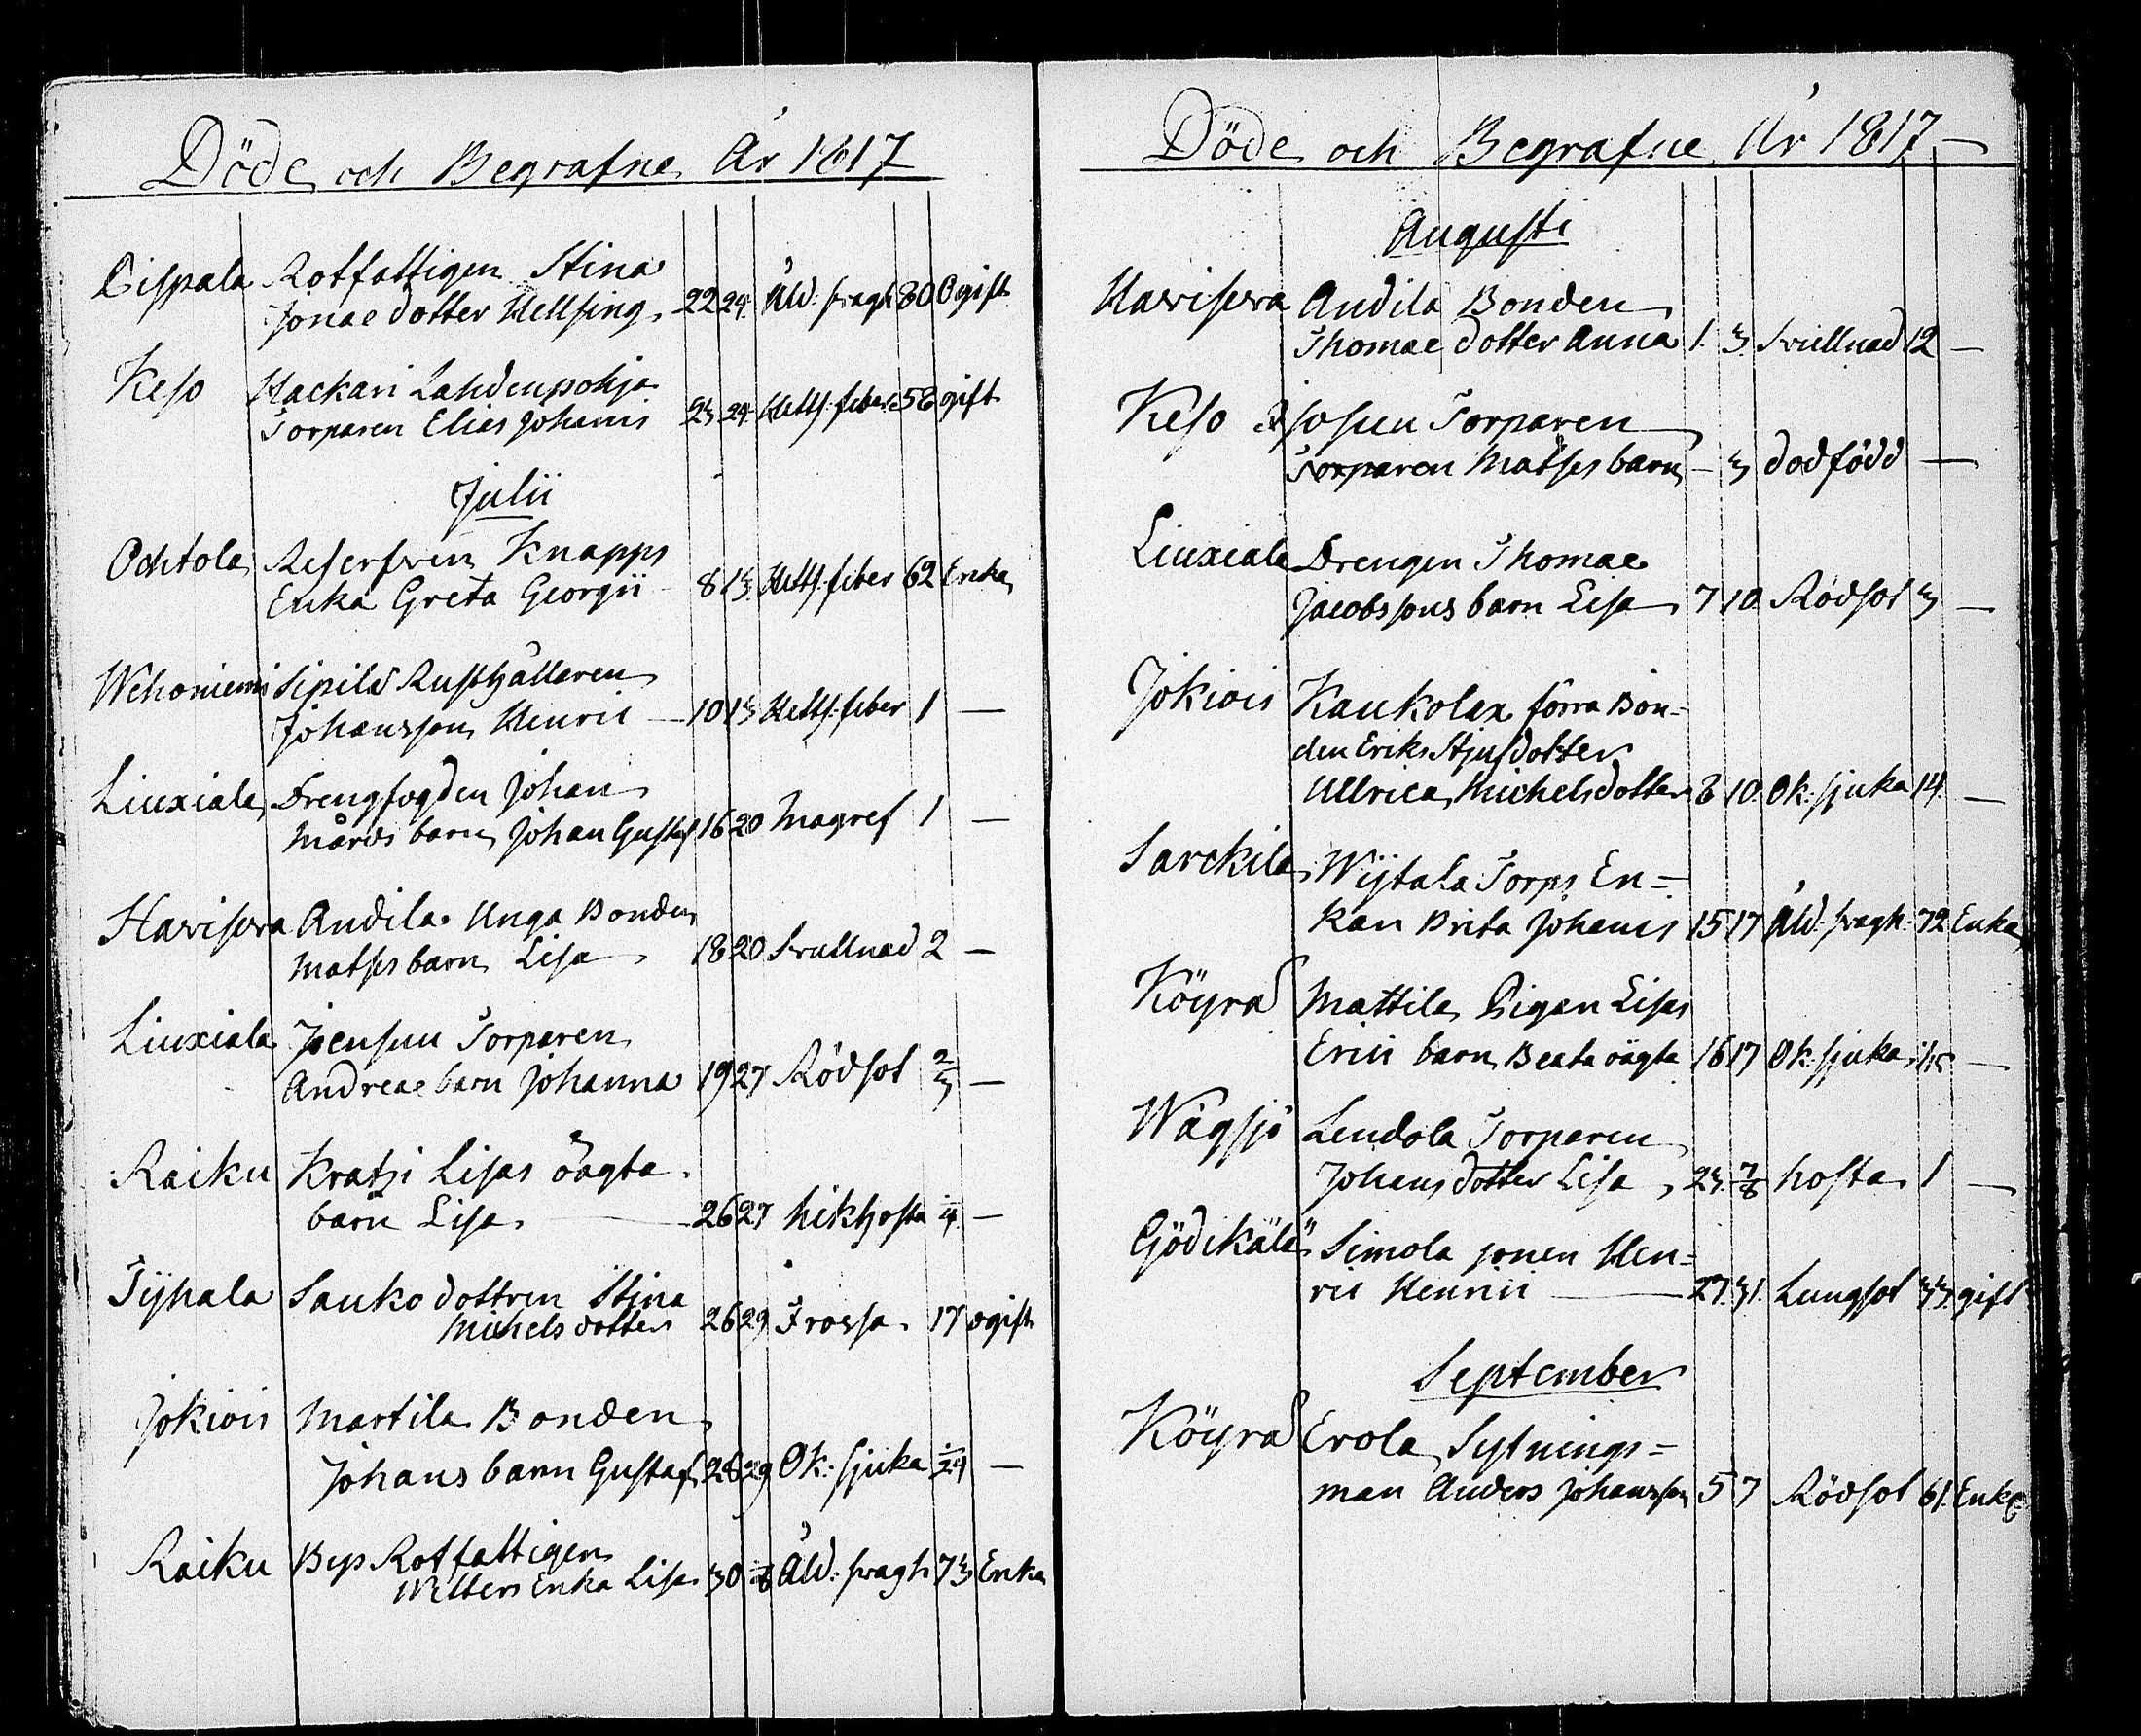 Döde och Begrafne År 1817
Pispala Rotfattigen Stina
Jonae dotter Hellsing 22 24 Åld: svagh 80 Ogift
Keso Hackari Lahdenpohja
Torparen Elias Johanis 23 24 Hetts: feber 58 gift
Julii
Ochtola Reserfven Knapps
Enka Greta Georgii 8 13 Hetts: feber 62 Enka
Wehoniemi Sipilä Rusthållaren
Johansson Henric 10 13 Hetts: feber 1 —
Liuxiala Drengfogden Johan
Mårds barn Johan Gustaf 16 20 Magref 1 —
Havisevra Andila Unga Bonden
Matses barn Lisa 18 20 Svullnad 2 —
Liuxiala Joensuu Torparen
Andreae barn Johanna 19 27 Rödsot 2/3 —
Raiku Kratsi Lisas oägta
barn Lisa 26 27 kikhosta 1/4 —
Tÿhala Sauko dottren Stina
Michelsdotter 26 29 Frossa 17 ogift
Jokiois Martila Bonden
Johans barn Gustaf 28 29 Ok: sjuka 1/24 —
Raiku Bys Rotfattigen
Witters Enka Lisa 30 1/8 Åld: svagh 73 Enka
Döde och Begrafne År 1817
Augusti
Havisevra Andila Bonden
Thomae dotter Anna 1. 3. Svullnad 12 —
Keso Isosuu Torparen
Torparen Matses barn — 3 dödfödd —
Liuxiala Drengen Thomae
Jacobssons barn Lisa 7 10 Rödsot 3 —
Jokiois Kaukolax förra Bon-
den Eriks Stjufdotter
Ullrica Michelsdotter 8 10. Ok: sjuka 14. —
Sarckila Wijtala Torps En-
kan Brita Johanis 15 17 Åld: svagh: 72 Enka
Köyrä Mattila Pigan Lisas
Erici barn Beata oägta 16 17 Ok: sjuka —
Wägsjö Lendola Torparen
Johans dotter Lisa 23. 7/8 hosta 1 —
Gödikälä Simola sonen Hen-
ric Henrici 27. 31. Lungsot 33. gift
September
Köyrä Erola Sytnings-
man Anders Johansson 5 7 Rödsot 61. Enkl